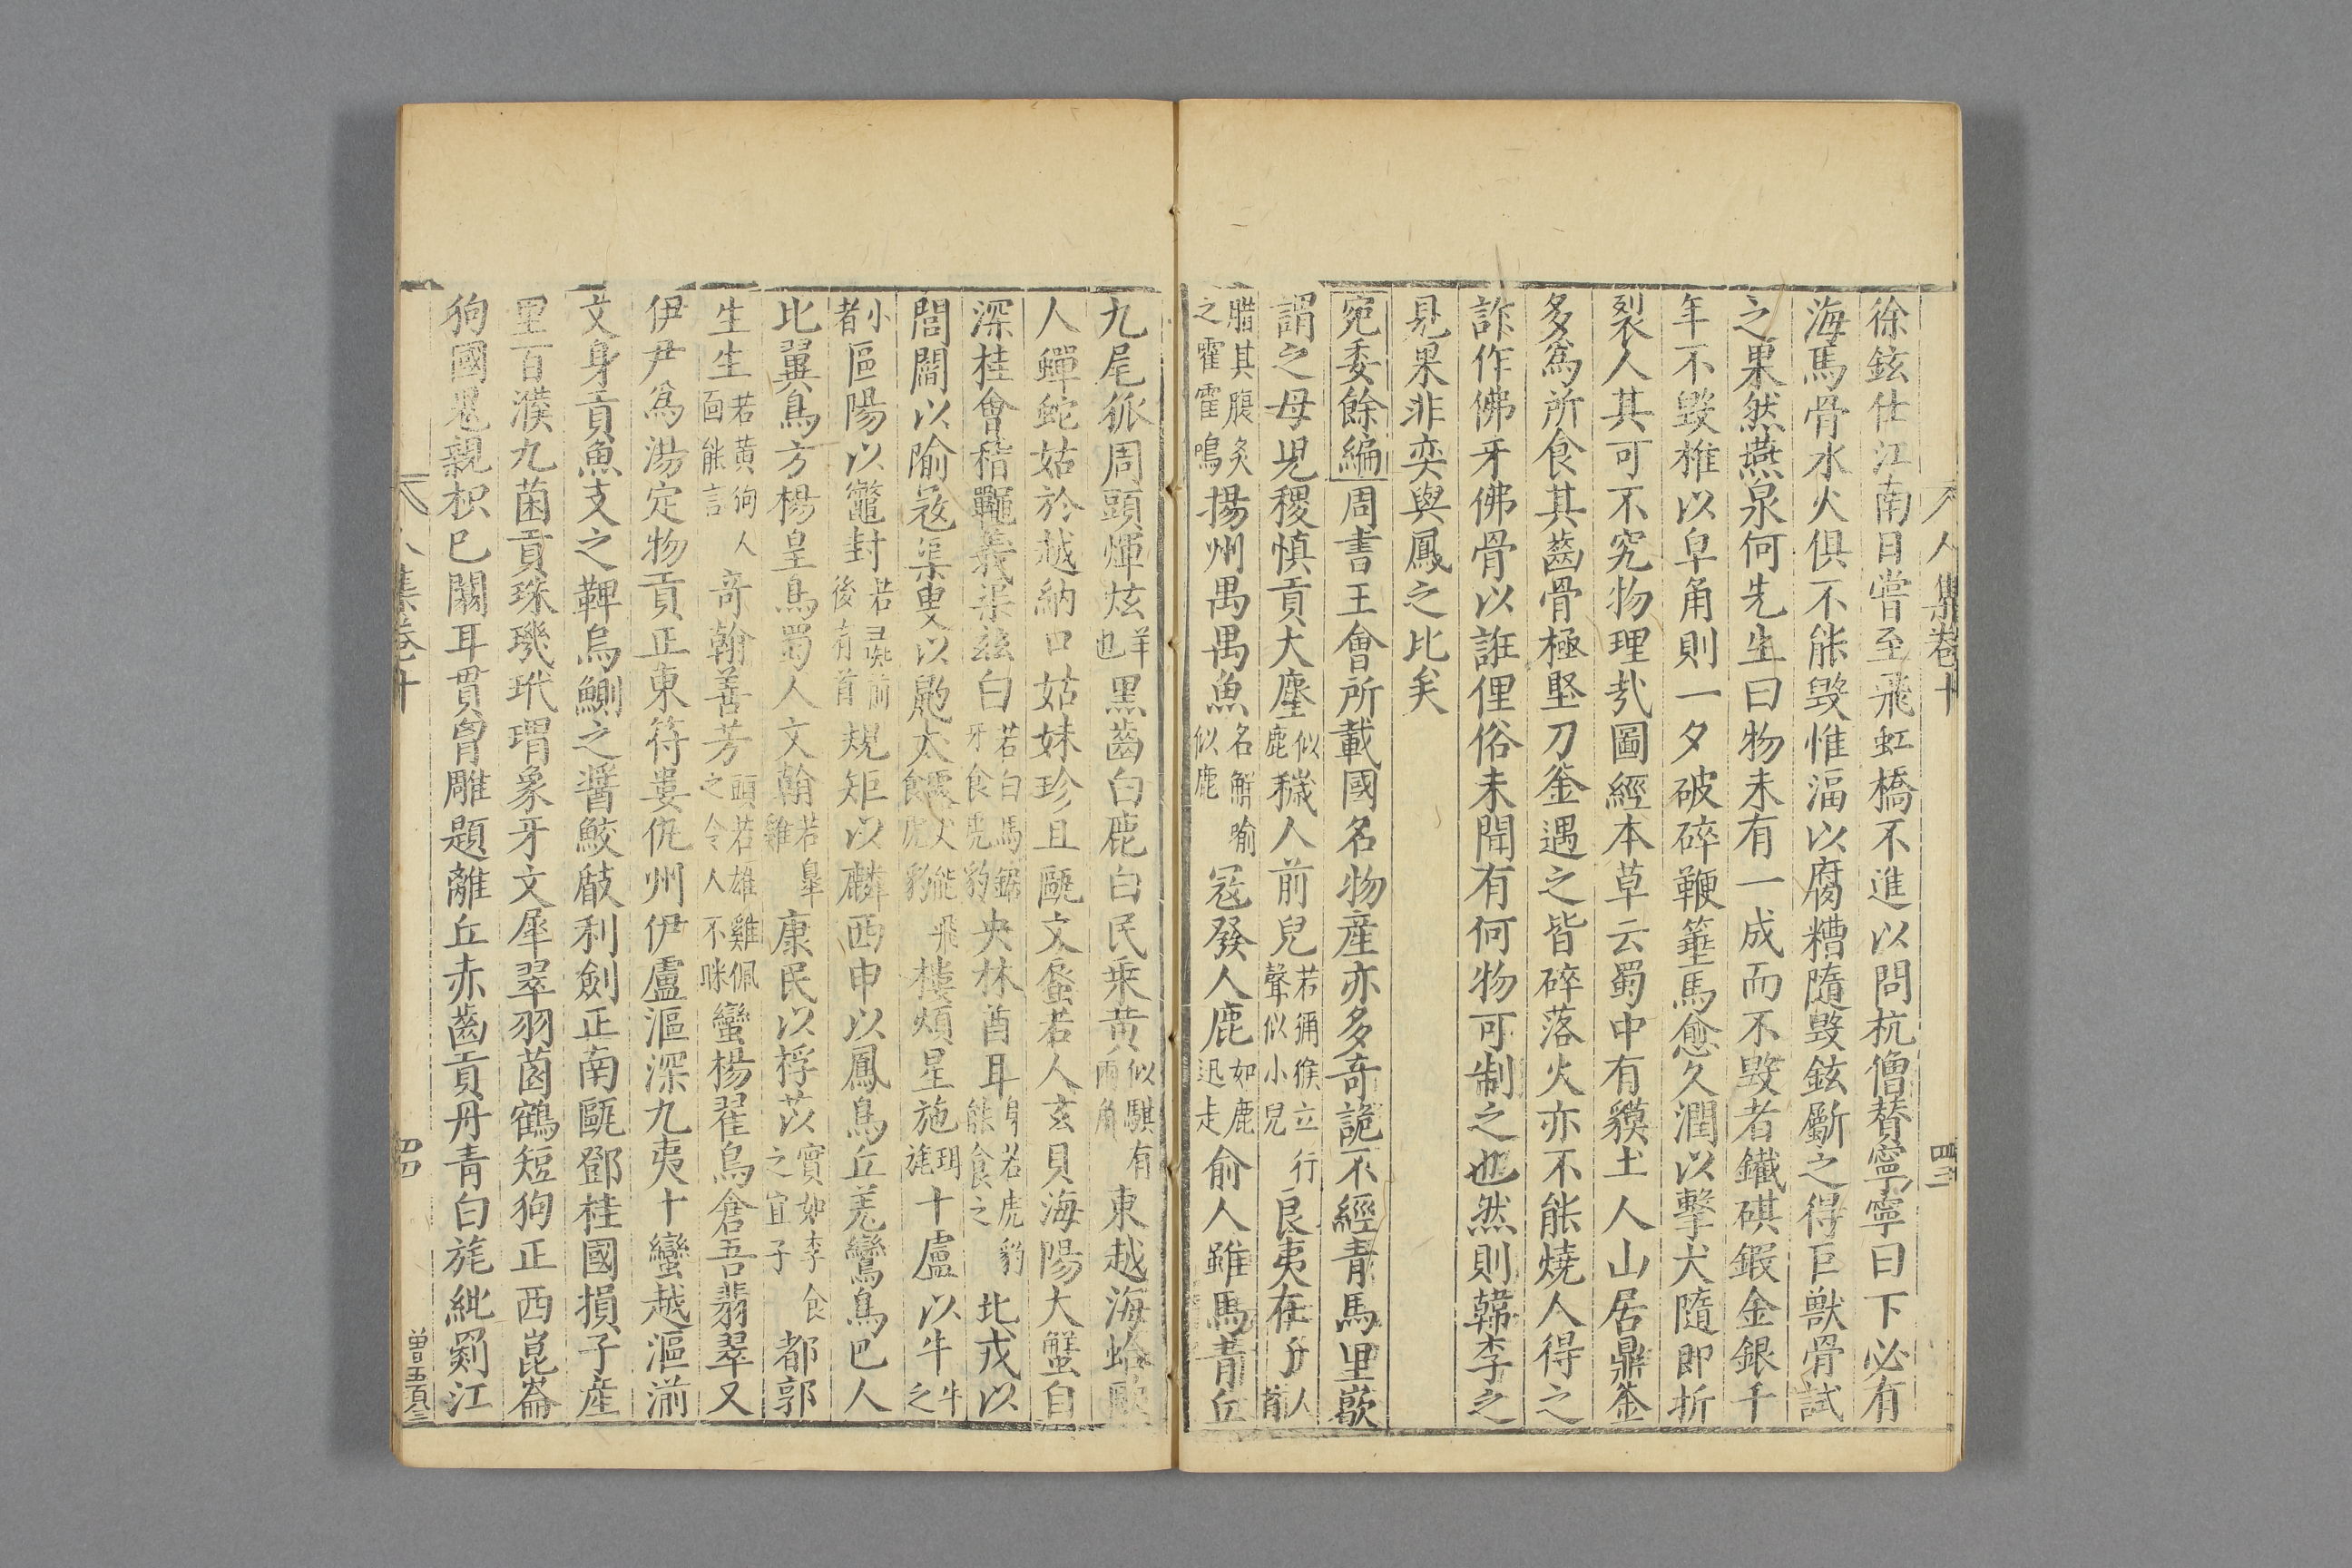 人集卷十 四三
徐鉉仕江南日嘗至飛虹橋不進以問杭僧贊寧寧曰下必有
海馬骨水火俱不能毀惟漚以腐糟隨毀鉉斸之得巨獸骨試
之果然燕泉何先生曰物未有一成而不毀者鐵碪鍜金銀千
年不毀椎以皁角則一夕破碎鞭箠馬愈久潤以擊犬隨即折
裂人其可不究物理㢤圖經本草云蜀中有貘土人山居鼎釜
多爲所食其齒骨極堅刀釜遇之皆碎落火亦不能燒人得之
詐作佛牙佛骨以誑俚俗未聞有何物可制之也然則韓李之
見果非奕與鳳之比矣
宛委餘編周書王會所載國名物産亦多奇詭不經青馬里歊
謂之母児稷慎貢大麈似鹿穢人前兒若獼猴立行聲似小兒良夷在子人首
腊其腹炙之霍霍鳴揚州禺禺魚名觧喻似鹿冦發人鹿如鹿迅走俞人雖馬青丘
九尾狐周頭煇炫羊也黑齒白鹿白民乗黄似騏有兩角東越海蛤歐
人蟬蛇姑於越納口姑妹珍且甌文蜃若人玄貝海陽大蟹自
深桂會稽鼉義渠玆白若白馬鋸牙食虎豹央林酋耳身若虎豹能食之北戎以
閭閭以隃冦渠叟以䶂犬䶂犬能飛食虎豹樓煩星施珥旄十盧以牛牛之
小者區陽以鼈封若彘前後有首規矩以麟西申以鳳鳥丘羌鸞鳥巴人
比翼鳥方楊皇鳥蜀人文翰若皐雞康民以桴苡實如李食之宜子都郭
生生若黄狗人面能言奇翰善芳頭若雄雞佩之令人不眯蠻楊翟鳥倉吾翡翠又
伊尹爲湯定物貢正東符婁仇州伊盧漚深九夷十蠻越漚湔
文身貢魚支之鞞烏鰂之醤鮫瞂利劍正南甌鄧桂國損子産
里百濮九菌貢珠璣玳瑁象牙文犀翠羽菌鶴短狗正西崑崙
狗國鬼親枳巳闟耳貫胷雕題離丘赤齒貢丹青白旄紕罽江
人集卷十 四四